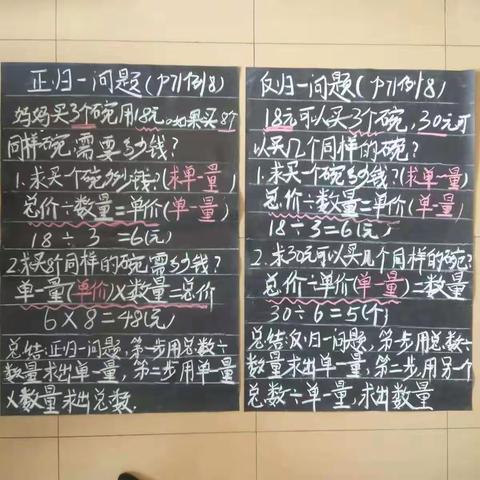 正归一问题(P71例8)
妈妈买3个碗用18元。如果买8个
同样碗,需要多少钱?
1.求买一个碗多少钱?(求单一量)
总价÷数量=单价(单一量)
18÷3=6(元)
2.求买8个同样的碗需多少钱?
单一量(单价)×数量=总价
6×8=48(元)
总结:正归一问题,第一步用总数÷
数量求出单一量,第二步用单一量
×数量求出总数.
反归一问题(P71例8)
18元可以买3个碗,30元可
以买几个同样的碗?
1.求买一个碗多少钱?(求单一量)
总价÷数量=单价(单一量)
18÷3=6(元)
2.求30元可以买几个同样的碗?
总价÷单价(单一量)=数量
30÷6=5(个)
总结:反归一问题,第一步用总数÷
数量求出单一量,第二步用另一个
总数÷单一量,求出数量